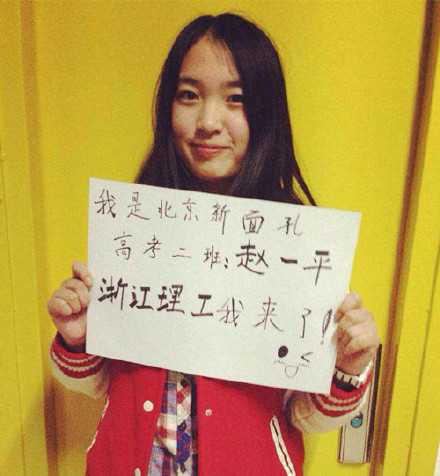 我是北京新面孔
高考二班:赵一平
浙江理工我来了!